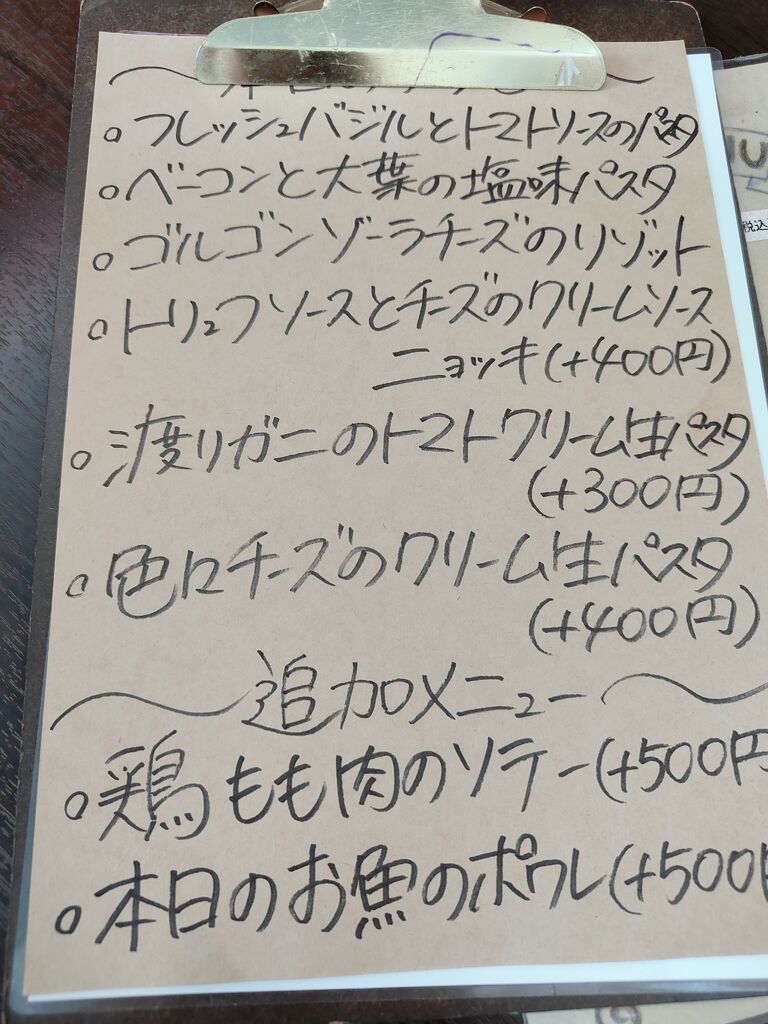 。フレッシュバジルとトマトソースのパスタ
。ベーコンと大葉の塩味パスタ
。ゴルゴンゾーラチーズのリゾット
。トリュフソースとチーズのクリームソース
ニョッキ(+400円)
。渡りガニのトマトクリーム生パスタ
(+300円)
。色々チーズのクリーム生パスタ
(+400円)
追加メニュー
。鶏もも肉のソテー(+500円
。本日のお魚のポワレ(+500円
税込